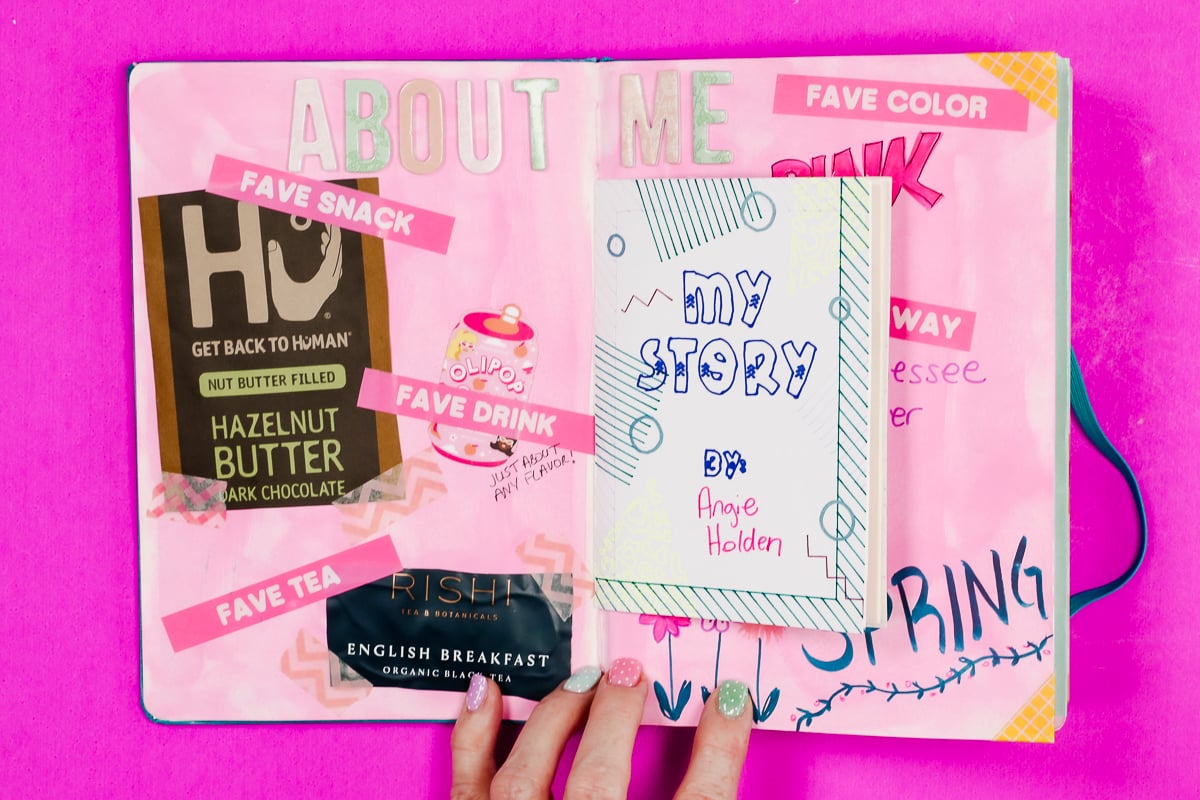 ABOUT ME
FAVE SNACK
HU
GET BACK TO HUMAN®
NUT BUTTER FILLED
HAZELNUT
BUTTER
DARK CHOCOLATE
OLIPOP
FAVE DRINK
JUST ABOUT
ANY FLAVOR!
FAVE TEA
RISHI
TEA & BOTANICALS
ENGLISH BREAKFAST
ORGANIC BLACK TEA
FAVE COLOR
PINK
MY
STORY
BY:
Angie
Holden
WAY
essee
er
SPRING